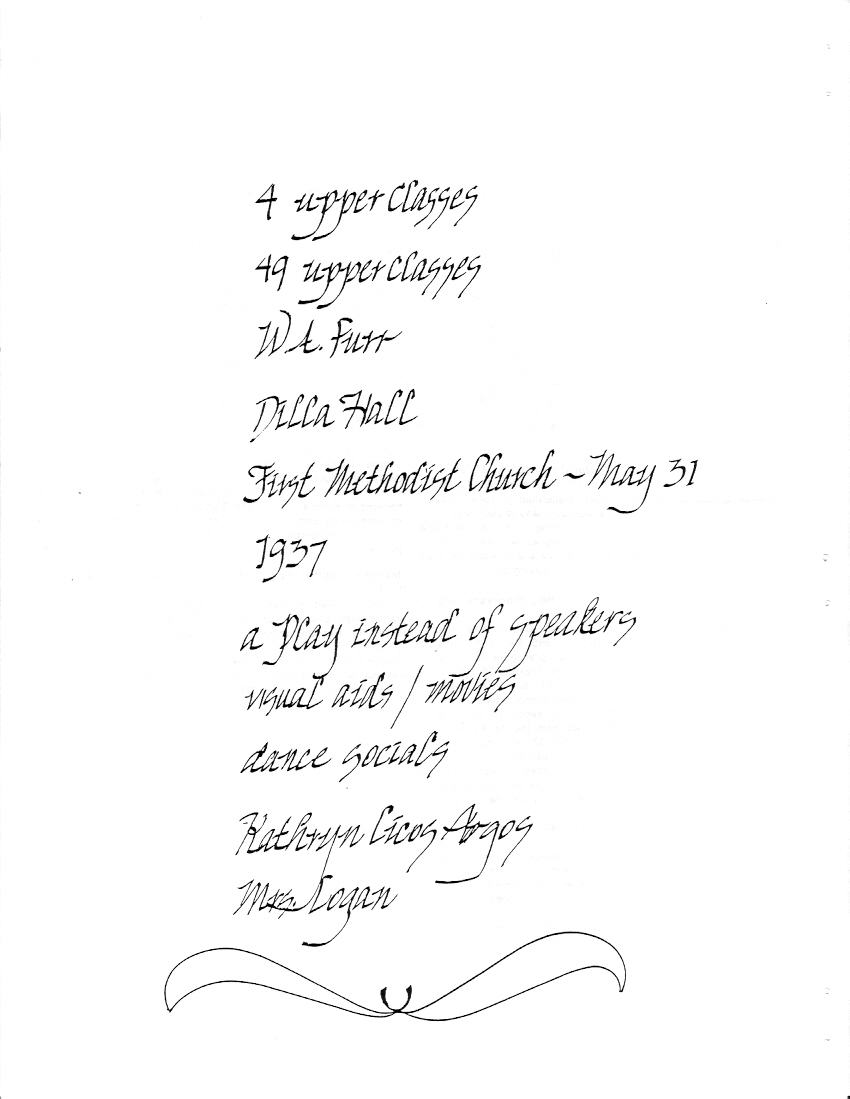 4 upper classes
49 upper classes
W.A. Furr
Dilla Hall
First Methodist Church ~ May 31
1937
a Play instead of speakers
visual aids / movies
dance socials
Kathryn Cicos Argos
Mrs. Logan